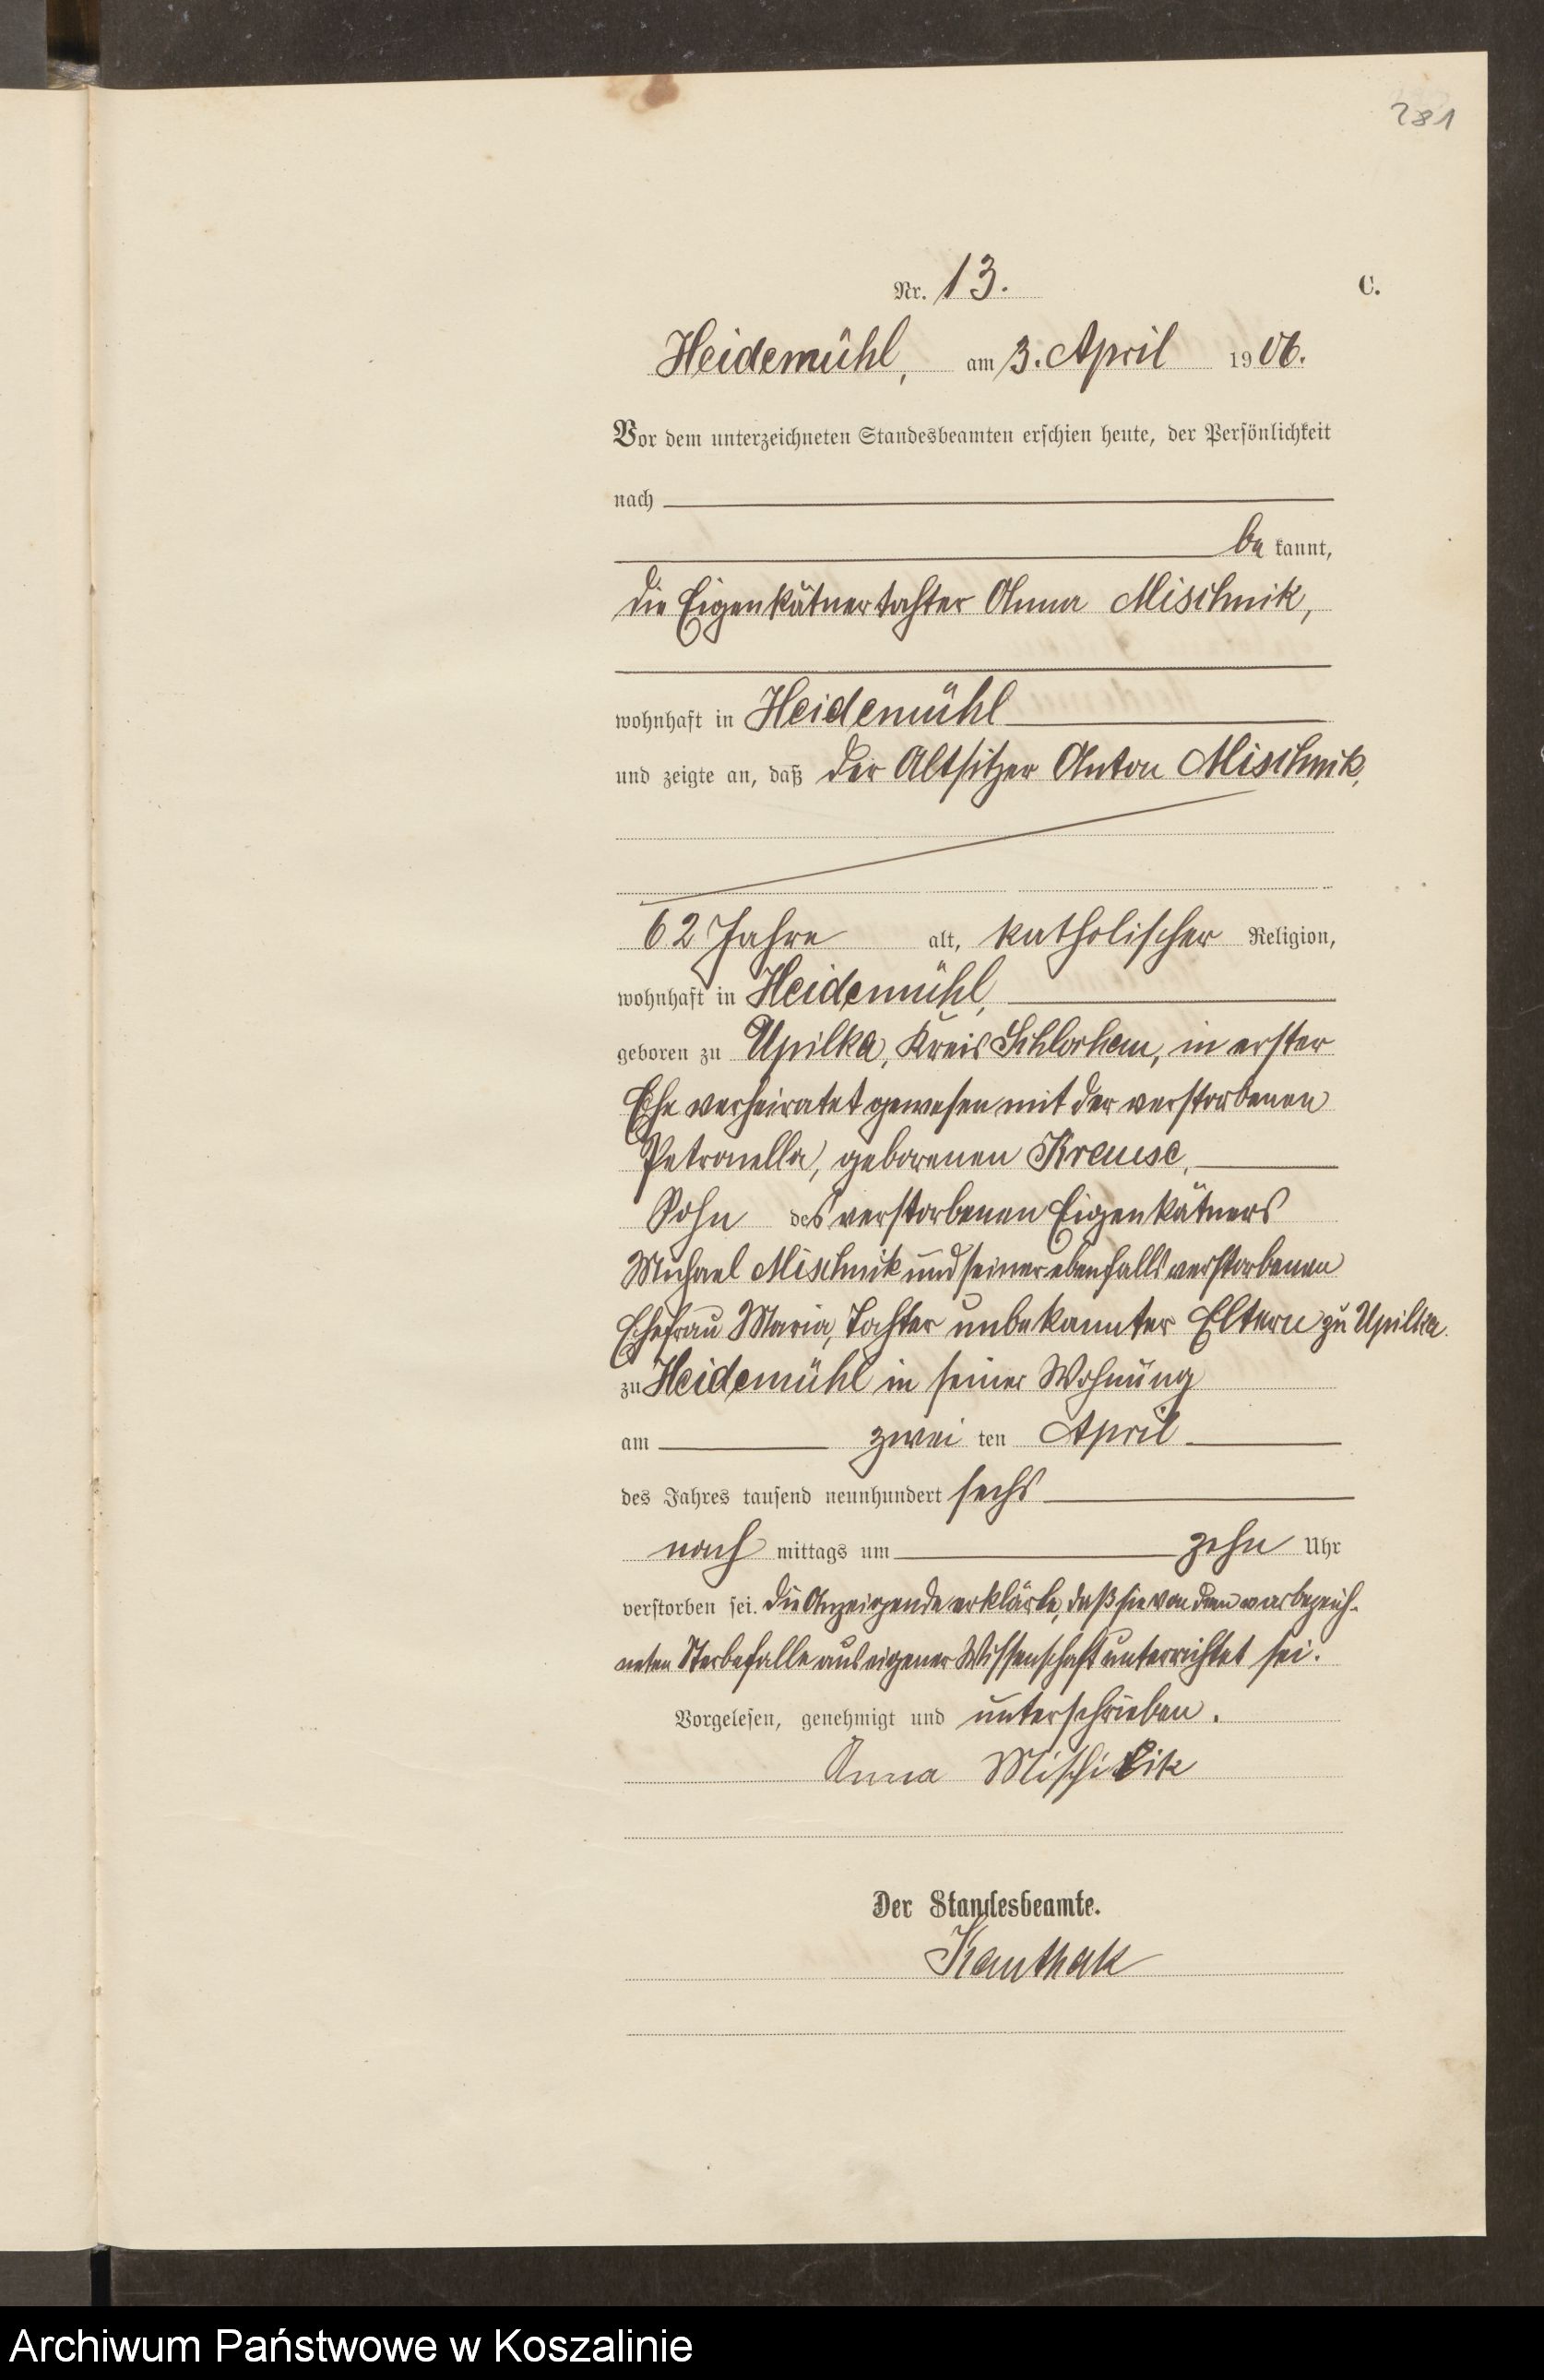 281
Nr. 13.
C.
Heidemühl, am 3. April 1906.
Vor dem unterzeichneten Standesbeamten erschien heute, der Persönlichkeit
nach
be kannt,
die Eigenkätnertochter Anna Mischnik,
wohnhaft in Heidemühl
und zeigte an, daß der Altsitzer Anton Mischnik,
62 Jahre alt, katholischer Religion,
wohnhaft in Heidemühl,
geboren zu Upilka, Kreis Schlochau, in erster
Ehe verheiratet gewesen mit der verstorbenen
Petronella, geborenen Krause,
Sohn des verstorbenen Eigenkätners
Michael Mischnik und seiner ebenfalls verstorbenen
Ehefrau Maria, Tochter unbekannter Eltern zu Upilka.
zu Heidemühl in seiner Wohnung
am zwei ten April
des Jahres tausend neunhundert sechs
nach mittags um zehn Uhr
verstorben sei. Die Anzeigende erklärte, daß sie von dem vorbezeich-
neten Sterbefalle aus eigener Wissenschaft unterrichtet sei.
Vorgelesen, genehmigt und unterschrieben.
Anna
Der Standesbeamte.
Kauthak
Archiwum Państwowe w Koszalinie